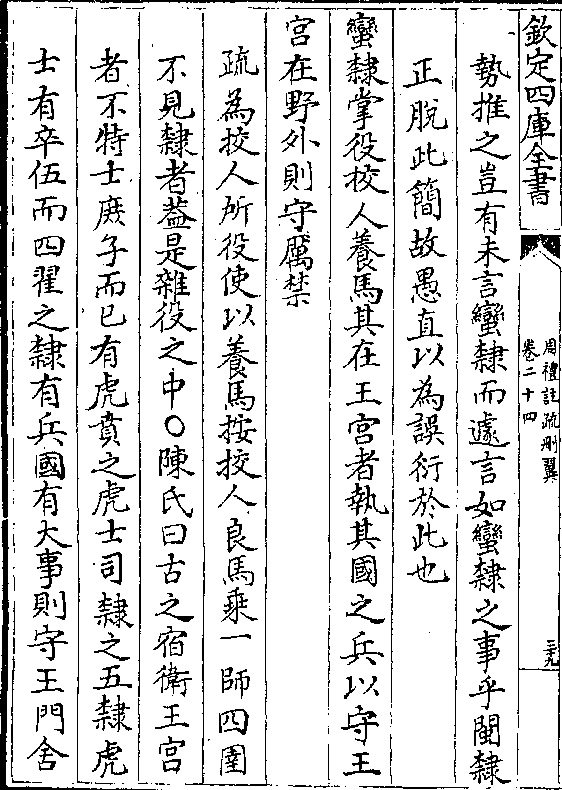 欽定四庫全書
周禮註疏刪翼
卷二十四
三九
勢推之豈有未言蠻隸而遽言如蠻隸之事乎閩隸
正脫此簡故愚直以為誤衍於此也
蠻隸掌役挍人養馬其在王宮者執其國之兵以守王
宮在野外則守厲禁
疏為挍人所役使以養馬按挍人良馬乗一師四圉
不見隸者葢是雜役之中〇陳氏曰古之宿衛王宮
者不特士庶子而已有虎賁之虎士司隸之五隸虎
士有卒伍而四翟之隸有兵國有大事則守王門舍